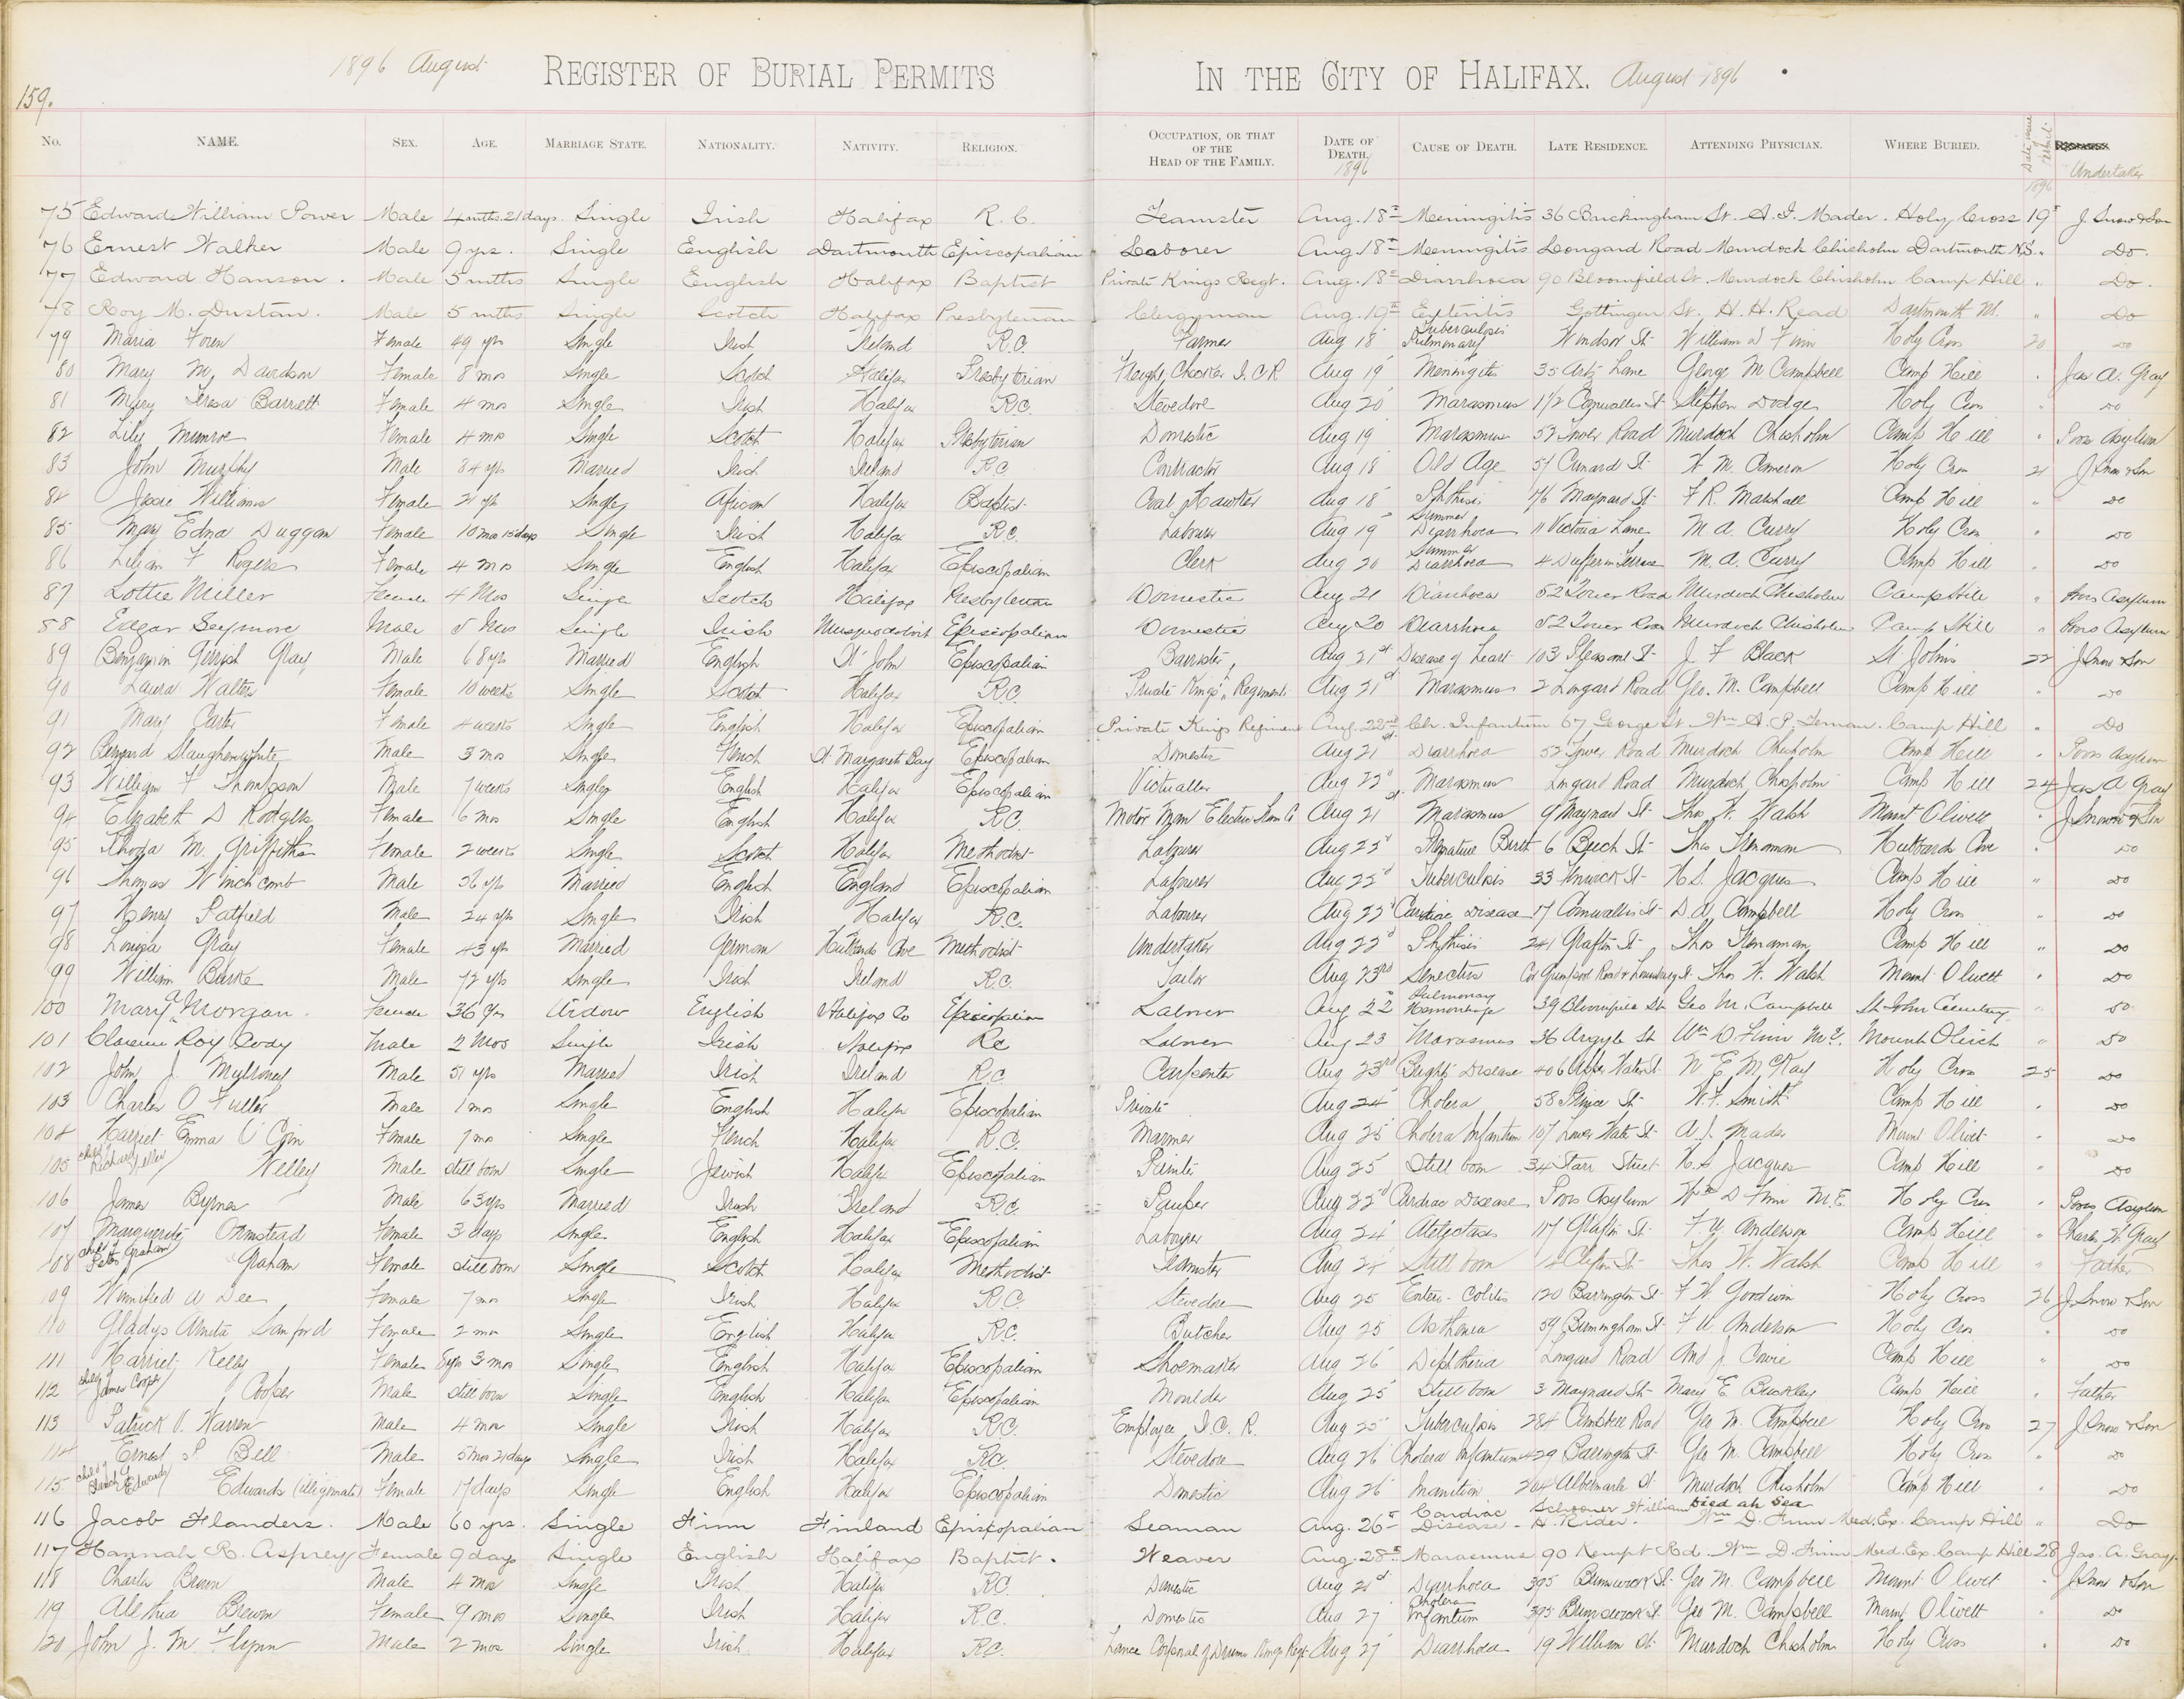 159.
1896 August REGISTER OF BURIAL PERMITS IN THE CITY OF HALIFAX. August 1896
No. NAME. SEX. AGE. MARRIAGE STATE. NATIONALITY. NATIVITY. RELIGION. OCCUPATION, OR THAT OF THE HEAD OF THE FAMILY. DATE OF DEATH. 1896 CAUSE OF DEATH. LATE RESIDENCE. ATTENDING PHYSICIAN. WHERE BURIED. 1896 Undertaker
75 Edward William Power Male 4 mths. 21 days. Single Irish Halifax R. C. Teamster Aug. 18th Meningitis 36 Buckingham St. A. I. Mader. Holy Cross 19th J. Snow & Son
76 Ernest Walker Male 9 yrs. Single English Dartmouth Episcopalian Laborer Aug. 18th Meningitis Longard Road Murdoch Chisholm Dartmouth N.S. " Do.
77 Edward Hanson. Male 5 mths Single English Halifax Baptist Private Kings Regt. Aug. 18th Diarrhoea 90 Bloomfield St. Murdoch Chisholm Camp Hill " Do.
78 Roy M. Dustan. Male 5 mths Single Scotch Halifax Presbyterian Clergyman Aug. 19th Enteritis Gottingen St. H. H. Read Dartmouth " Do
79 Maria Foren Female 49 yrs Single Irish Ireland R.C. Farmer Aug 18 Tuberculosis Pulmonary Windsor St William D Finn Holy Cross 20 Do
80 Mary M. Davidson Female 8 mos Single Scotch Halifax Presbyterian Freight Checker I.C.R Aug 19 Meningitis 35 Artz Lane George M Campbell Camp Hill " Jas A. Gray
81 Mary Teresa Barrett Female 4 mos Single Irish Halifax R.C. Stevedore Aug 20 Marasmus 112 Cornwallis St Stephen Dodge Holy Cross " Do
82 Lily Munroe Female 4 mos Single Scotch Halifax Presbyterian Domestic Aug 19 Marasmus 52 Tower Road Murdoch Chisholm Camp Hill " Poors Asylum
83 John Murphy Male 84 yrs Married Irish Ireland R.C. Contractor Aug 18 Old Age 51 Cunard St W M. Cameron Holy Cross 21 J Snow & Son
84 Jessie Williams Female 21 yrs Single African Halifax Baptist Coal Hawker Aug 18 Phthisis 76 Maynard St F R. Marshall Camp Hill " Do
85 Mary Edna Duggan Female 10 mos 15 days Single Irish Halifax R.C. Labourer Aug 19 Summer Diarrhoea 11 Victoria Lane M A. Curry Holy Cross " Do
86 Lilian F Rogers Female 4 mos Single English Halifax Episcopalian Clerk Aug 20 Summer Diarrhoea 4 Dufferin Terrace M. A. Curry Camp Hill " Do
87 Lottie Miller Female 4 Mos Single Scotch Halifax Presbyterian Domestic Aug 21 Diarrhoea 52 Tower Road Murdoch Chisholm Camp Hill " Poors Asylum
88 Edgar Seymore Male 5 Mos Single Irish Musquodoboit Episcopalian Domestic Aug 20 Diarrhoea 52 Tower Road Murdoch Chisholm Camp Hill " Poors Asylum
89 Benjamin Gerrish Gray Male 68 yrs Married English St John Episcopalian Barrister Aug 21st Disease of Heart 103 Pleasant St J. F Black St John's 22 J Snow & Son
90 Laura Walters Female 10 weeks Single Scotch Halifax R.C. Private King's Regiment Aug 21st Marasmus 2 Longard Road Geo. M. Campbell Camp Hill " Do
91 Mary Carter Female 4 weeks Single English Halifax Episcopalian Private Kings Regiment Aug. 22nd Ch. Infantum 67 George St Camp Hill " Do
92 Slaughenwhite Male 3 mos Single French St Margarets Bay Episcopalian Domestic Aug 21st Diarrhoea 52 Tower Road Murdoch Chisholm Camp Hill " Poors Asylum
93 William F Thompson Male 7 weeks Single English Halifax Episcopalian Victualler Aug 22d Marasmus Longard Road Murdoch Chisholm Camp Hill 24 Jas A Gray
94 Elizabeth D Rodgers Female 6 mos Single English Halifax R.C. Motor Man Electric Tram Co Aug 21st Marasmus 9 Maynard St Thos W. Walsh Mount Olivet " J Snow & Son
95 Rhoda M. Griffiths Female 2 weeks Single Scotch Halifax Methodist Labourer Aug 22d Premature Birth 6 Beech St Thos Trenaman Hubbards Cove " Do
96 Thomas Winchcomb Male 36 yrs Married English England Episcopalian Labourer Aug 22d Tuberculosis 33 H.S. Jacques Camp Hill " Do
97 Henry Patfield Male 24 yrs Single Irish Halifax R.C. Labourer Aug 22d Cardiac Disease 17 Cornwallis St D. A. Campbell Holy Cross " Do
98 Louisa Gray Female 43 yrs Married German Hubbards Cove Methodist Undertaker Aug 22d Phthisis 241 Grafton St Thos Trenaman Camp Hill " Do
99 William Burke Male 72 yrs Single Irish Ireland R.C. Tailor Aug 23rd Senectus Cor Quinpool Road & St Thos W. Walsh Mount Olivett " Do
100 Mary A Morgan. Female 36 Yrs Widow English Halifax Co Episcopalian Labourer Aug 22 Pulmonary Hemorrhage 39 Bloomfield St Geo M. Campbell St John Cemetery " Do
101 Clarence Roy Cody Male 2 Mos Single Irish Halifax RC Laborer Aug 23 Marasmus 36 Argyle St Wm D Finn M.E. Mount Olivet " Do
102 John J. Mulroney Male 51 yrs Married Irish Ireland R.C. Carpenter Aug 23rd Brights Disease 406 Upper Water St N E McKay Holy Cross 25 Do
103 Charles O Fuller Male 1 mo Single English Halifax Episcopalian Private Aug 24 Cholera 58 St W.F. Smith Camp Hill " Do
104 Harriet Emma Female 7 mo Single French Halifax R.C. Mariner Aug 25 Cholera Infantum 107 Lower Water St A. I. Mader Mount Olivet " Do
105 child of Richard Welley Welley Male still born Single Jewish Halifax Episcopalian Painter Aug 25 Still born 34 Starr Street H.S. Jacques Camp Hill " Do
106 James Byrnes Male 63 yrs Married Irish Ireland R.C. Pauper Aug 22d Cardiac Disease Poors Asylum Wm D Finn M.E. Holy Cross " Poors Asylum
107 Marguerite Ormstead Female 3 days Single English Halifax Episcopalian Labourer Aug 24 Atelectasis 117 Grafton St F U. Anderson Camp Hill " Charles W. Gray
108 child of Peter Graham Graham Female still born Single Scotch Halifax Methodist Teamster Aug 24 Still born Clifton St Thos W. Walsh Camp Hill " Father
109 Winnifred A Dee Female 7 mos Single Irish Halifax R.C. Stevedore Aug 25 Entero-Colitis 120 Barrington St F W. Goodwin Holy Cross 26 J. Snow & Son
110 Gladys Almita Sanford Female 2 mos Single English Halifax R.C. Butcher Aug 25 Asthenia 59 Birmingham St F U. Anderson Holy Cross " Do
111 Harriet Kelly Female 8 yrs 3 mos Single English Halifax Episcopalian Shoemaker Aug 26 Diphtheria Longard Road And J. Cowie Camp Hill " Do
112 child of James Cooper Cooper Male still born Single English Halifax Episcopalian Moulder Aug 25 Still born 3 Maynard St Mary E Buckley Camp Hill " Father
113 Patrick V. Warren Male 4 mos Single Irish Halifax R.C. Employee I.C.R. Aug 25 Tuberculosis 284 Campbell Road Geo M. Campbell Holy Cross 27 J Snow & Son
114 Ernest P. Bell Male 5 mos 21 days Single Irish Halifax R.C. Stevedore Aug 26 Cholera Infantum 429 Barrington St Geo M. Campbell Holy Cross " Do
115 child of Edwards Edwards (illigimate) Female 17 days Single English Halifax Episcopalian Domestic Aug 26 Inanition 204 Albermarle St Murdoch Chisholm Camp Hill " Do
116 Jacob Flanders. Male 60 yrs. Single Finn Finland Episcopalian Seaman Aug. 26th Cardiac Disease - Schooner William H. Rider. Died at Sea Wm D. Finn Med. Ex. Camp Hill " Do
117 Hannah R. Asprey Female 9 days Single English Halifax Baptist. Weaver Aug. 28th Marasmus 90 Kempt Rd. Wm D. Finn Med. Ex. Camp Hill 28 Jas. A. Gray.
118 Charles Brown Male 4 mos Single Irish Halifax R.C. Domestic Aug 21st Diarrhoea 395 Brunswick St. Geo M. Campbell Mount Olivet " J Snow & Son
119 Alethia Brewin Female 9 mos Single Irish Halifax R.C. Domestic Aug 27 Cholera Infantum 395 Brunswick St. Geo M. Campbell Mount Olivett " Do
120 John J. M. Flynn Male 2 mos Single Irish Halifax R.C. Lance Corporal of Drums Kings Regt Aug 27 Diarrhoea 19 William St Murdoch Chisholm Holy Cross " Do